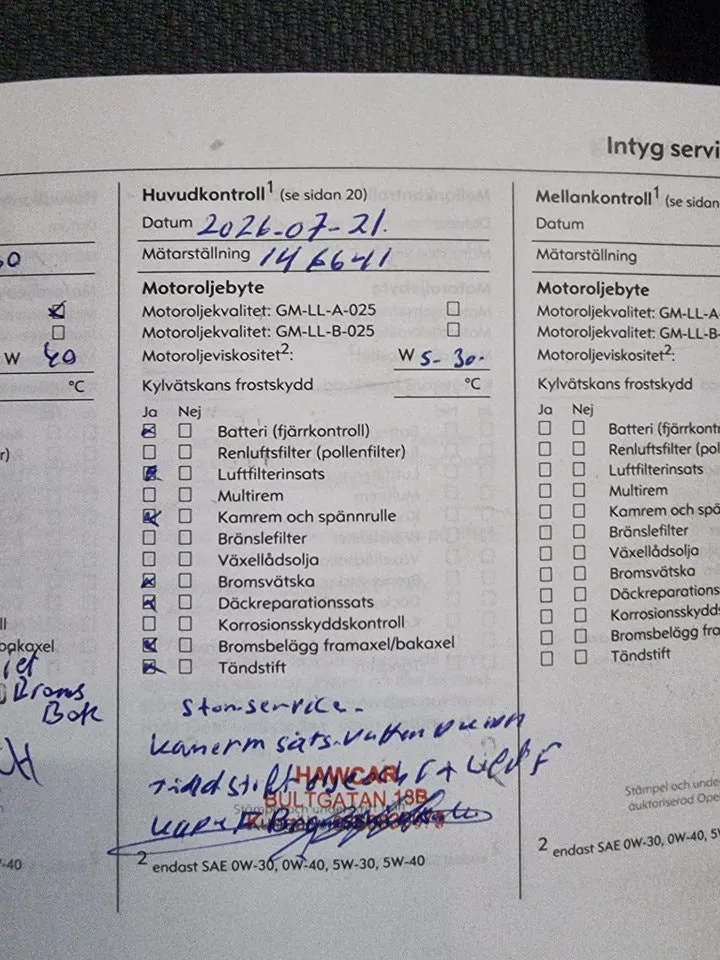 Intyg servi
Huvudkontroll¹ (se sidan 20)
Datum 2026-07-21.
Mätarställning 146641
Motoroljebyte
Motoroljekvalitet: GM-LL-A-025
Motoroljekvalitet: GM-LL-B-025
Motoroljeviskositet²: W 5-30-
Kylvätskans frostskydd °C
Ja Nej
Batteri (fjärrkontroll)
Renluftsfilter (pollenfilter)
Luftfilterinsats
Multirem
Kamrem och spännrulle
Bränslefilter
Växellådsolja
Bromsvätska
Däckreparationssats
Korrosionsskyddskontroll
Bromsbelägg framaxel/bakaxel
Tändstift
Storservice-
HAWCAR
BULTGATAN 18B
² endast SAE 0W-30, 0W-40, 5W-30, 5W-40
W 40
°C
Broms
Bak
-40
Mellankontroll¹ (se sidan
Datum
Mätarställning
Motoroljebyte
Motoroljekvalitet: GM-LL-A-
Motoroljekvalitet: GM-LL-B-
Motoroljeviskositet²:
Kylvätskans frostskydd
Ja Nej
Batteri (fjärrkontr
Renluftsfilter (pol
Luftfilterinsats
Multirem
Kamrem och spä
Bränslefilter
Växellådsolja
Bromsvätska
Däckreparations
Korrosionsskydds
Bromsbelägg fra
Tändstift
Stämpel och unde
auktoriserad Ope
² endast SAE 0W-30, 0W-40, 5W